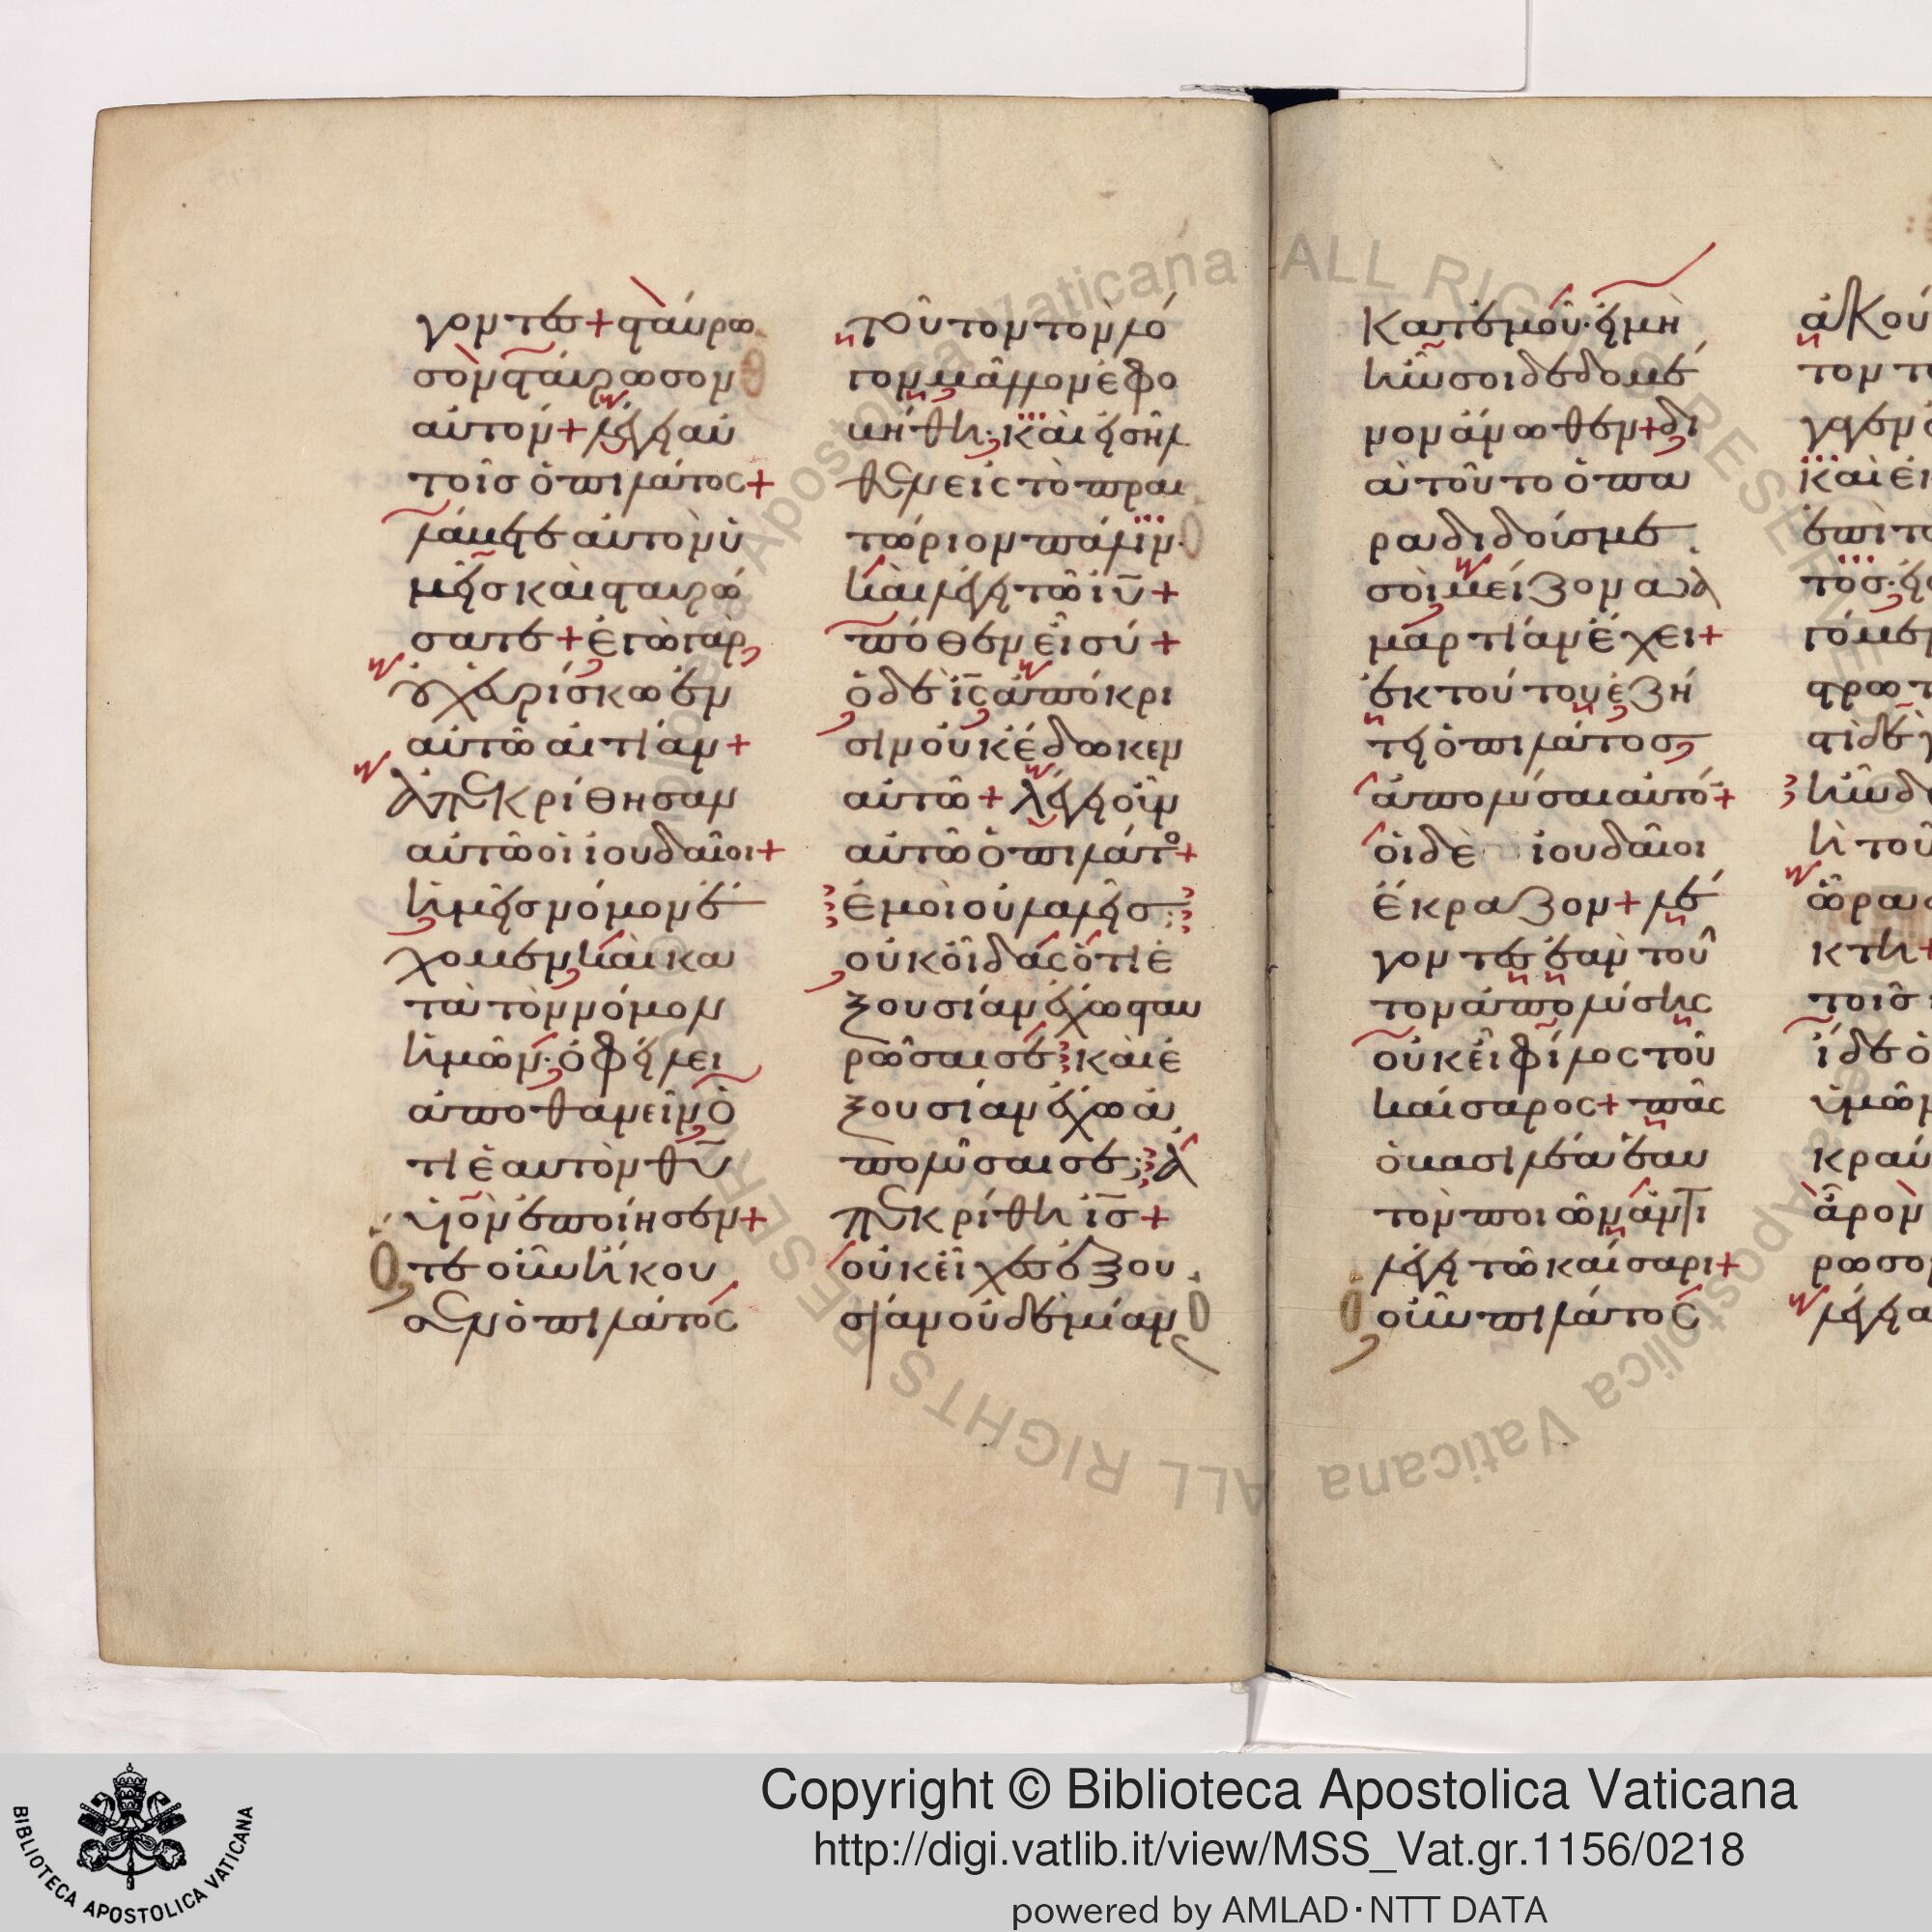 γοντες + σταύρω
σον σταύρωσον
αὐτόν + λέγει αὐ
τοῖς ὁ πιλάτος +
λάβετε αὐτὸν ὑ
μεῖς καὶ σταυρώ
σατε + ἐγὼ γὰρ
οὐχ εὑρίσκω ἐν
αὐτῶ αἰτίαν +
ἀπεκρίθησαν
αὐτῶ οἱ ἰουδαῖοι +
ἡμεῖς νόμον ἔ
χομεν καὶ κα
τὰ τὸν νόμον
ἡμῶν· ὀφείλει
ἀποθανεῖν ὅ
τι ἑαυτὸν θῦ
υἱὸν ἐποίησεν +
Ὅτε οὖν ἤκου
σεν ὁ πιλάτος
τοῦτον τὸν λό
γον μᾶλλον ἐφο
βήθη· καὶ εἰσῆλ
θεν εἰς τὸ πραι
τώριον πάλιν·
καὶ λέγει τῶ ιῦ +
πόθεν εἶ σύ +
ὁ δὲ ις ἀπόκρι
σιν οὐκ ἔδωκεν
αὐτῶ + λέγει οὖν
αὐτῶ ὁ πιλάτο +
ἐμοὶ οὐ λαλεῖς;
οὐκ οἶδας ὅτι ἐ
ξουσίαν ἔχω σταυ
ρῶσαι σε καὶ ἐ
ξουσίαν ἔχω ἀ
πολῦσαι σε; ἀ
πεκρίθη ις +
οὐκ εἶχες ἐξου
σίαν οὐδεμίαν
κατ' ἐμοῦ· εἰ μὴ
ἦν σοι δεδομέ
νον ἄνωθεν + δι
ὰ τοῦτο ὁ πα
ραδιδούς με
σοὶ μείζονα ἁ
μαρτίαν ἔχει +
ἐκ τούτου ἐζή
τει ὁ πιλάτος
ἀπολύσαι αὐτό +
οἱ δὲ ἰουδαῖοι
ἔκραζον + λέ
γοντες ἐὰν τοῦ
τον ἀπολύσης
οὐκ εἶ φίλος τοῦ
καίσαρος + πᾶς
ὁ βασιλέα ἑαυ
τὸν ποιῶν ἀντι
λέγει τῶ καίσαρι +
Ὁ οὖν πιλάτος
ἀκού
τον το
καὶ ἐκ
ἐπὶ το
γόμεν
ἰ τοῦ
ὥρα
κτη +
τοῖς ἰ
ἴδε ὁ
ὑμῶν
κραύ
ἆρον
ρωσον
λέγει α
Copyright © Biblioteca Apostolica Vaticana
http://digi.vatlib.it/view/MSS_Vat.gr.1156/0218
powered by AMLAD·NTT DATA
BIBLIOTECA APOSTOLICA VATICANA